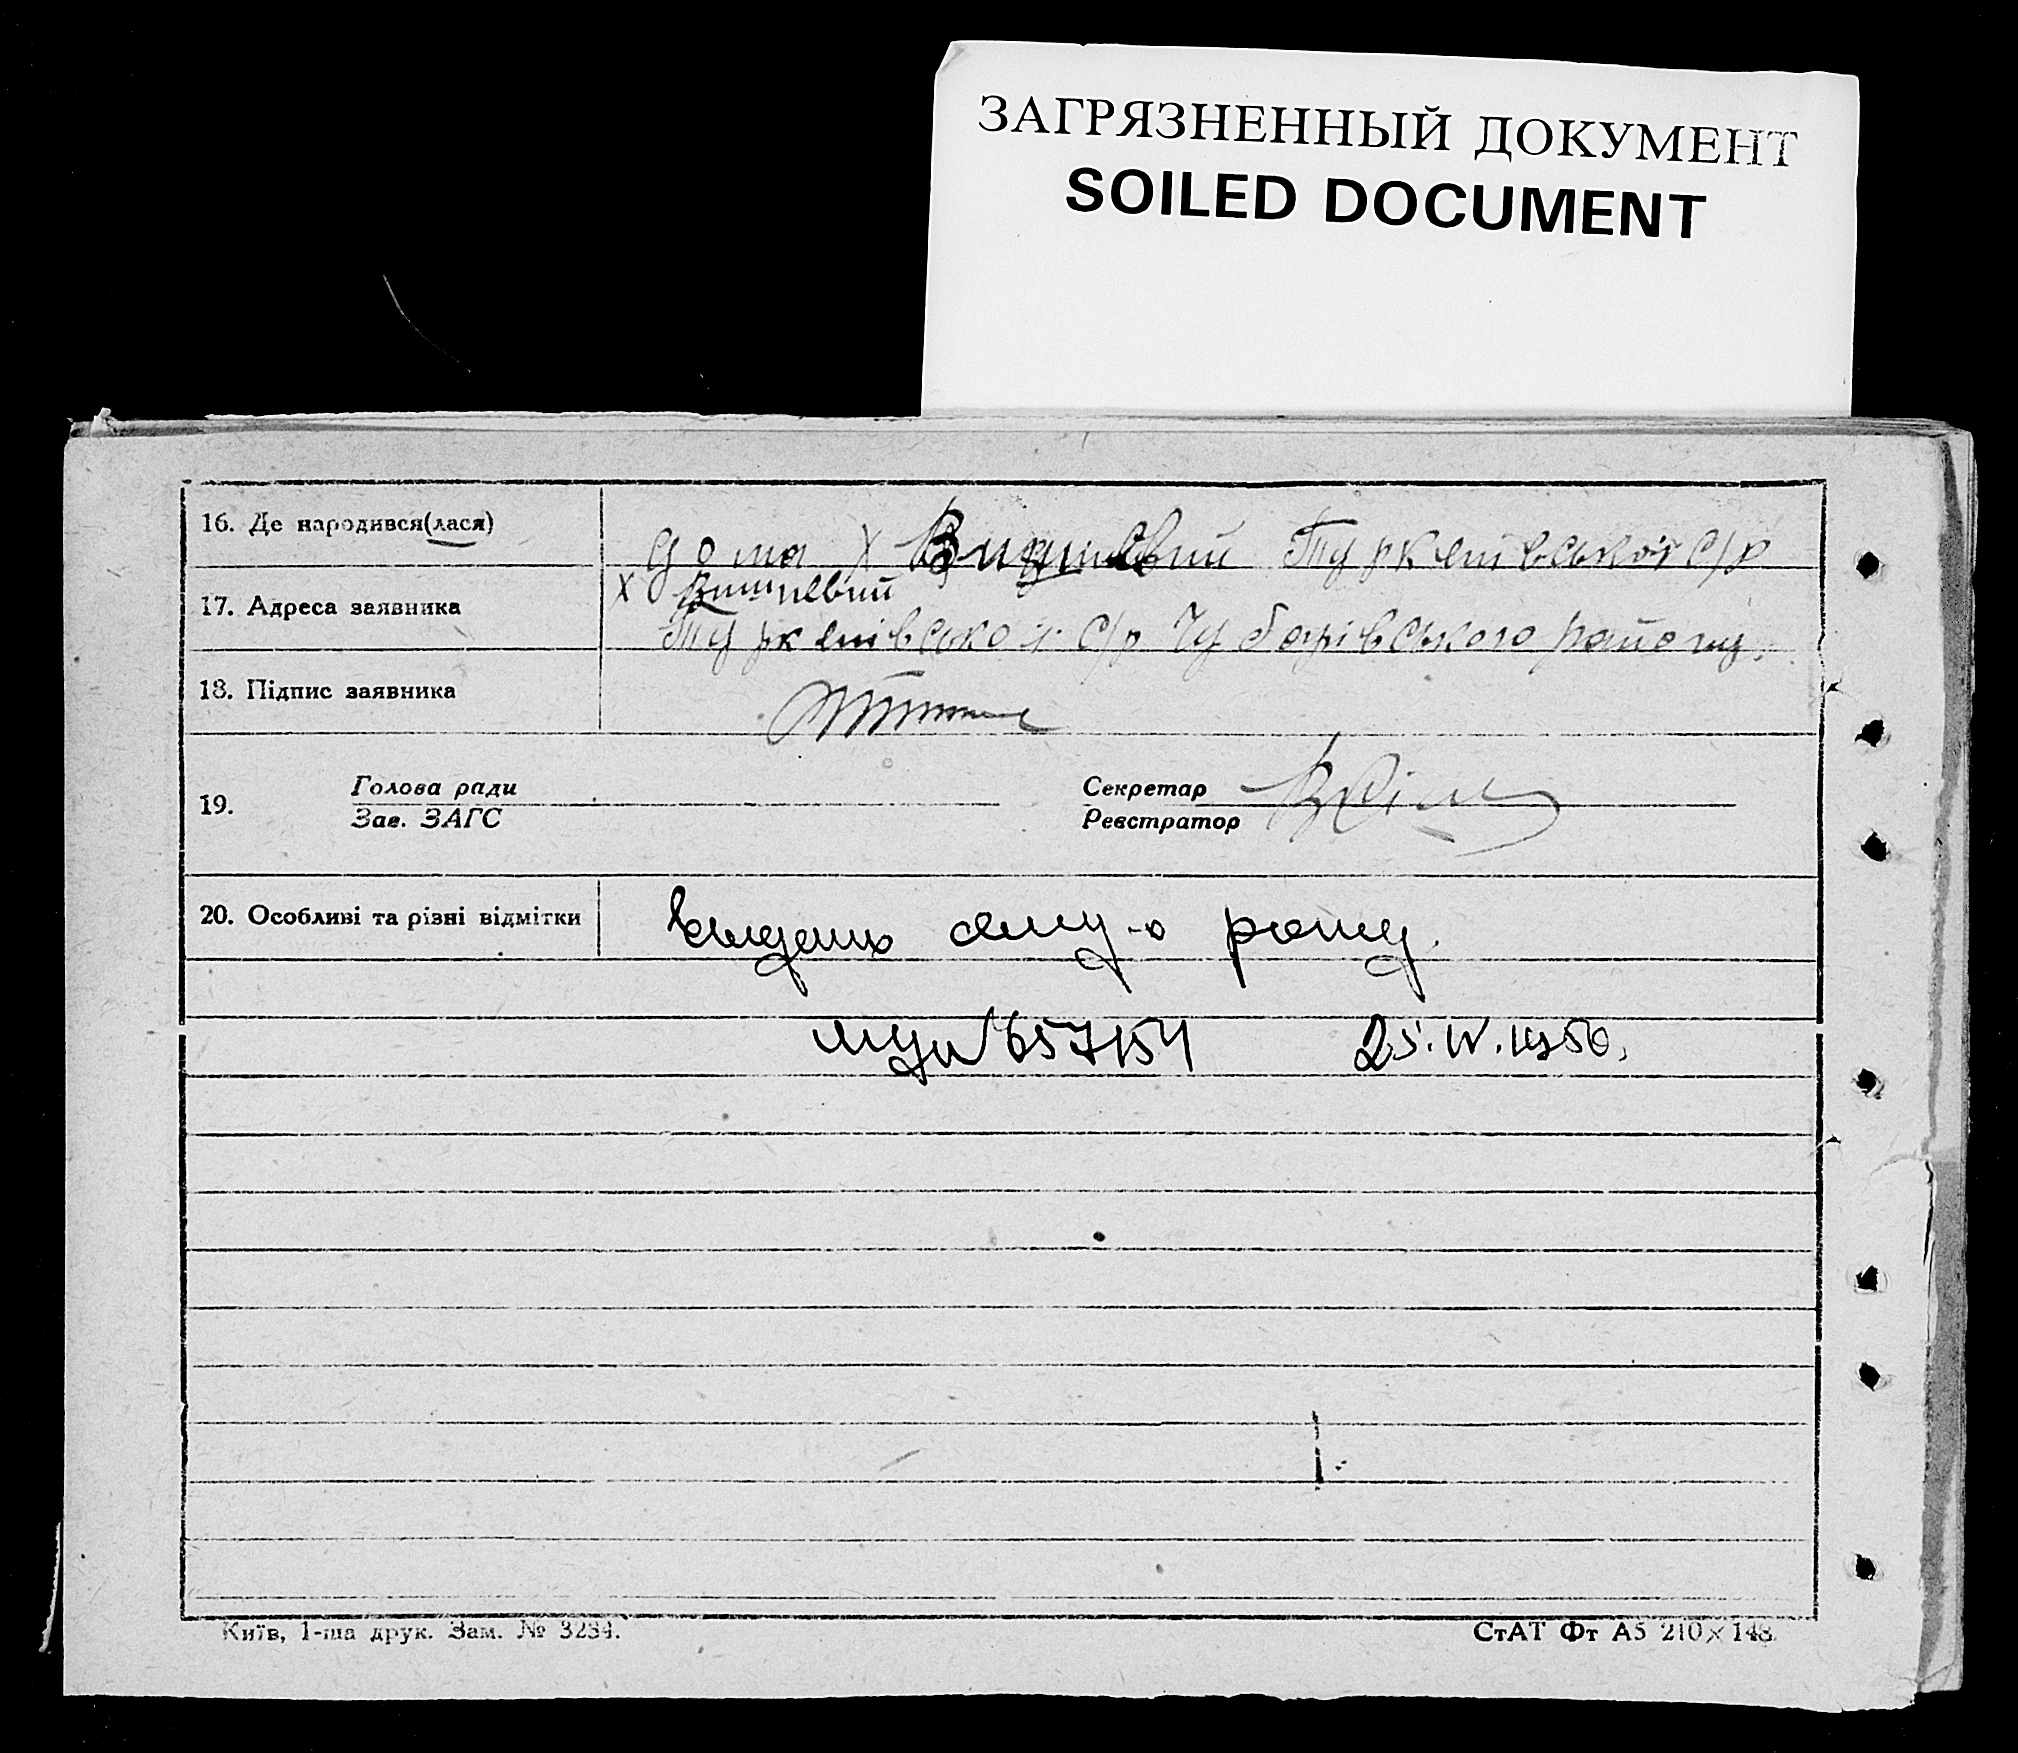 ЗАГРЯЗНЕННЫЙ ДОКУМЕНТ
SOILED DOCUMENT
16. Де народився(лася)
дома х Вишневий Туркенівської с/р
17. Адреса заявника
х Вишневий
Туркенівської с/р Чубарівського району.
18. Підпис заявника
19.
Голова ради
Зав. ЗАГС
Секретар
Реєстратор
20. Особливі та різні відмітки
№ 657154 25.IV.1950.
Київ, 1-ша друк. Зам. № 3234.
СтАТ Фт А5 210×148.